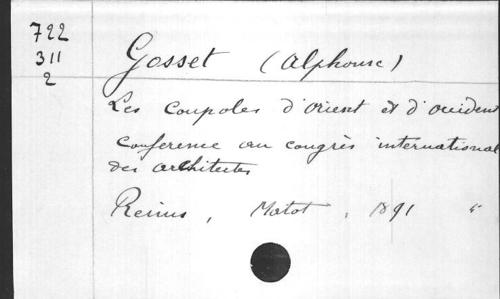 722
311
2
Gosset (Alphonse)
Les Coupoles d'orient et d'occident
Conference au congrès international
des architectes
Reims, Matot, 1891 "